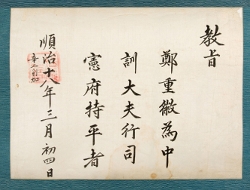 教旨
鄭重徽為中
訓大夫行司
憲府持平者
順治十八年三月初四日